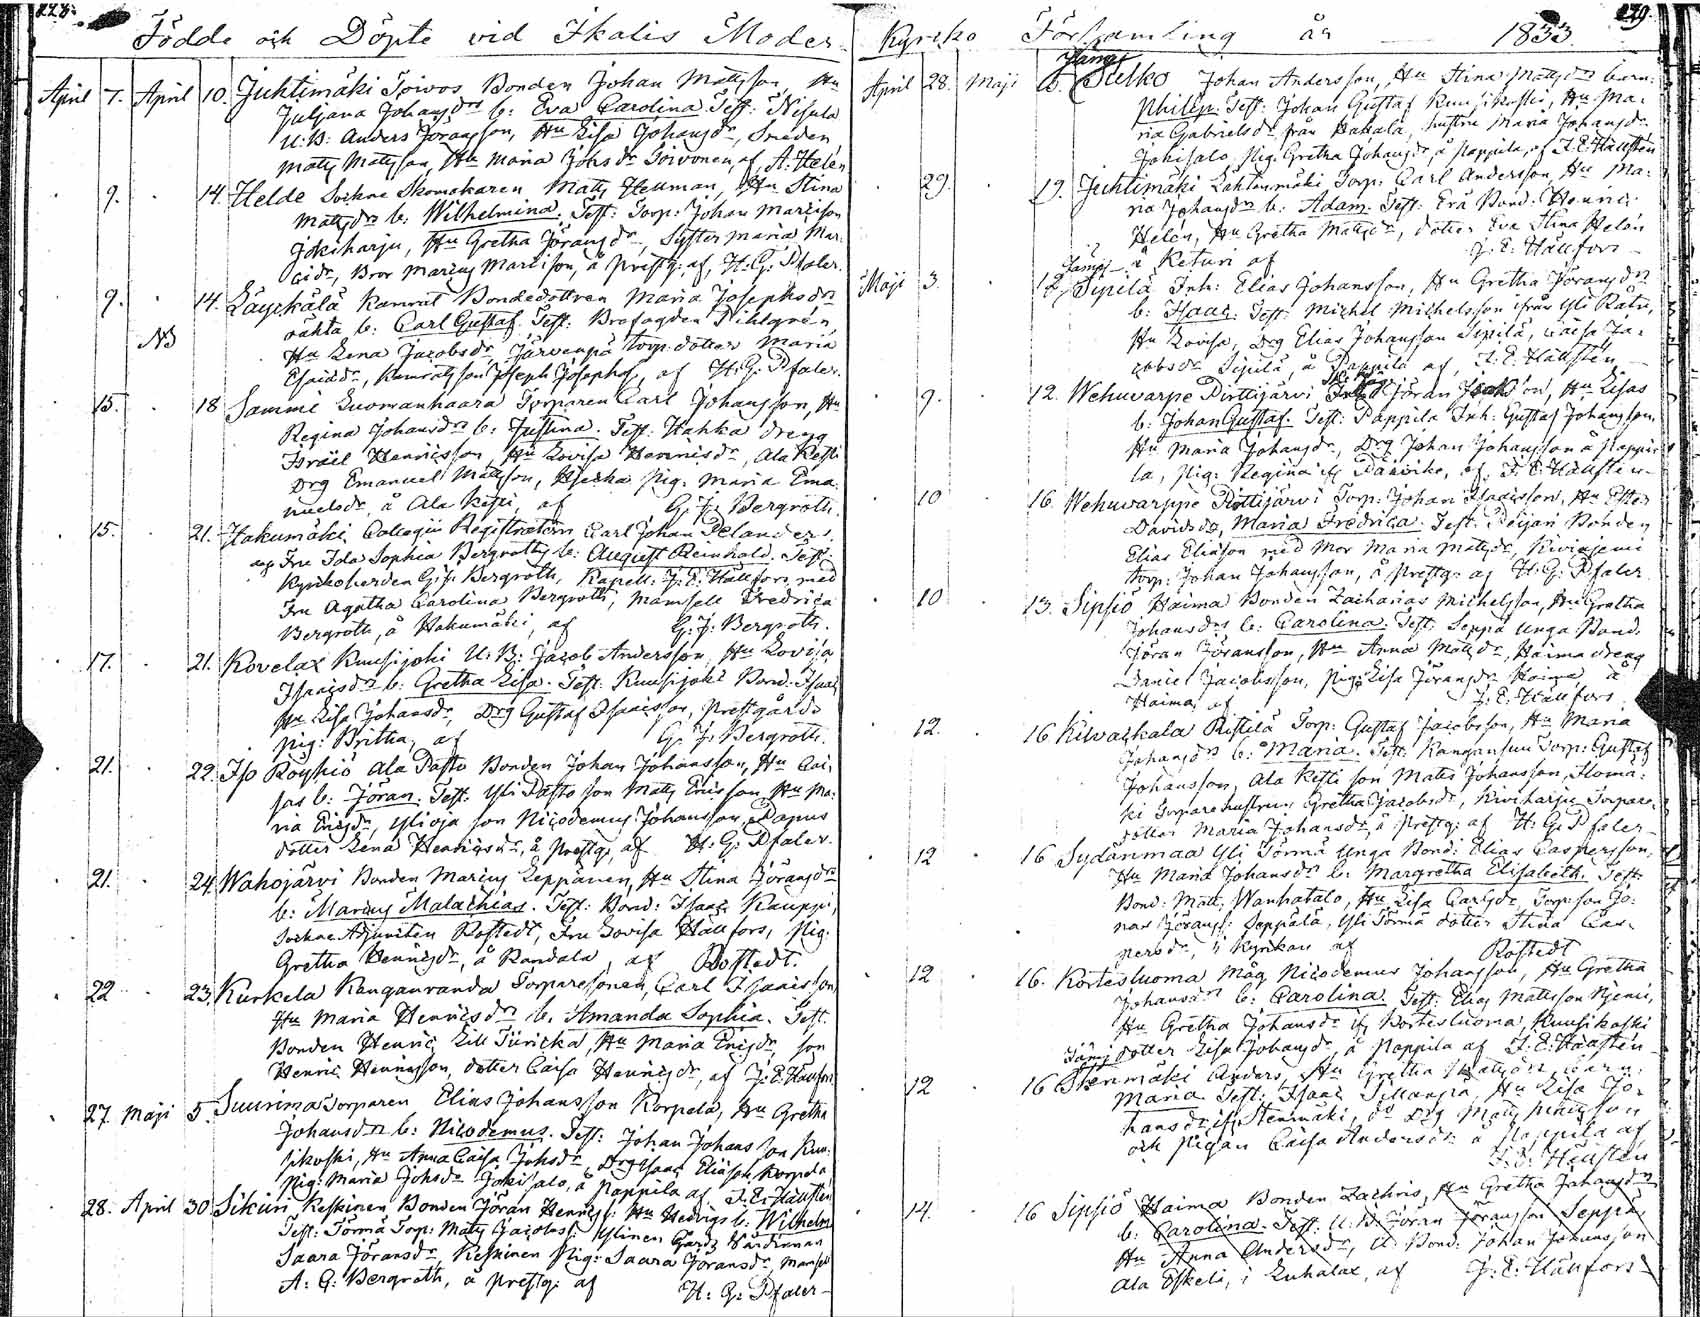 228.
Födde och Döpte vid Ikalis Moder-
April 7. April 10. Juhtimäki Toivos Bonden Johan Mattsson, Hu
Juljana Johansdrs b: Eva Carolina Test: Nisula
U:B: Anders Jöransson, Hu Lisa Johansdr, Smeden
Matts Mattsson, Hu Maria Johsdr Toivonen, af A: Helén
9. 14. Helde Sockne Skomakaren Matts Heuman, Hu Stina
Mattsdrs b: Wilhelmina. Test: Torp: Johan Marcisson
Jokiharju, Hu Gretha Jöransdr, Syster Maria Mar-
cidr, Bror Marcus Marcisson, å Prestg: af, H:G: Pfaler.
9. 14. Läyckälä Bondedottren Maria Josephsdrs
NB oäkta b: Carl Gustaf. Test:
Hu Lena Jacobsdr, Järvenpä Torp: dotter Maria
Esaidr, son Joseph Josephss, af H:G: Pfaler.
15. 18 Sammi Luomanhaara Torparen Carl Johansson, Hu
Regina Johansdrs b: Justina. Test: Hahka dreng
Israël Henricsson, Hu Lovisa Henricsdr, Ala Kesti
Drg Emanuel Mattsson, Pig: Maria Ema-
nuelsdr, å Ala Kesti, af G: J: Bergroth.
15. 21. Hakumäki, Collegii Registratorn Carl Johan Pelanders
Fru Ida Sophia Bergroths b: August Reinhold. Test:
Kyrkoherden G: J: Bergroth, Kapell: J: E: Hällfors med
Fru Agatha Carolina Bergroth, Mamsell Fredrica
Bergroth, å Hakumäki, af G: J: Bergroth.
17. 21. Kovelax Kuusijoki U: B: Jacob Andersson, Hu Lovisa
Isaacsdrs b: Gretha Lisa. Test: Kuusijoki Bond: Isaac
Hu Lisa Johansdr, Drg Gustaf Isaacsson, Prestgårds
Pig: Britha, af G: J: Bergroth.
21. 22. Iso Röyhiö Ala Pasto Bonden Johan Johansson, Hu Cai-
sas b: Jöran. Test: Yli Pasto son Matts Ericsson, Hu Ma-
ria Ericsdr, Ylioja son Nicodemus Johansson, Papus
dotter Lena Henricsdr, å Prestg: af H: G: Pfaler.
21. 24. Wahojärvi Bonden Marcus Leppänen, Hu Stina Jöransdrs
b: Marcus Malachias. Test: Bond: Isaac Kauppi,
Sockne Adjuncten Rostedt, Fru Lovisa Hällfors, Pig:
Gretha Henricsdr, å Randala, af Rostedt.
22 23. Kurkela Kanganranda Torparesonen Carl Isaacsson,
Hu Maria Henricsdrs b. Amanda Sophia. Test:
Bonden Henric Lill Hu Maria Ericsdr, son
Henric Henricsson, dotter Caisa Henricsdr, af J: E: Hällfors
27. Maji 5. Suurima Torparen Elias Johansson Korpela, Hu Gretha
Johansdrs b: Nicodemus. Test: Johan Johansson Kuu-
sikoski, Hu Anna Caisa Johsdr, Drg Isaac Eliasson, Korpela
Pig: Maria Johsdr Jokisalo, å Pappila af J: E: Hällstén
28. April 30. Sikuri Keskinen Bonden Jöran Henricss: Hu Hedvigs b: Wilhelm
Test: Törmä Torp: Matts Jacobss: Ylinen
Saara Jöransdr, Keskinen Pig: Saara Jöransdr, Mamsell
A: C: Bergroth, å Prestg: af H: G: Pfaler-
229.
Kyrcko Församling år 1833.
Jämj
April 28. Maji 6. Sulko Johan Andersson, Hu Stina Mattsdrs barn:
Philip. Test: Johan Gustaf Kuusikoski, Hu Ma-
ria Gabrielsdr från Hakala, hustru Maria Johansdr
Jokisalo, Pig: Gretha Johansdr, å Pappila, af J: E: Hällstén
29. 19. Juhtimäki Lähtenmäki Torp: Carl Andersson, Hu Ma-
ria Johansdrs b: Adam. Test: Erä Bond: Henric
Helén, Hu Gretha Mattsdr, dotter Eva Stina Helén
å Keturi af J: E: Hällfors-
Jämj
Maji 3. 12. Sipilä Inh: Elias Johansson, Hu Gretha Jöransdrs
b: Isaac. Test: Michel Michelsson från Yli
Hu Lovisa, Drg Elias Johansson Sipilä, Caisa Ja-
cobsdr Sipilä, å Pappila af, J. E. Hällstén
9. 12. Wehuvarpe Pirttijärvi Jöran Hu Lisas
b: Johan Gustaf. Test: Pappila Inh: Gustaf Johansson,
Hu Maria Johansdr, Drg Johan Johansson å Pappi-
la, Pig: Regina af J. E. Hällstén-
10 16. Wehuvarppe Pirttijärvi Torp: Johan Isaacsson, Hu Ester
Davidsdrs, Maria Fredrica. Test: Bonden
Elias Eliasson med Mor Maria Mattsdr, Kiviniemi
Torp: Johan Johansson, å Prestg: af H: G: Pfaler
10 13. Sipsiö Haima Bonden Zacharias Michelsson, Hu Gretha
Johansdrs b: Carolina. Test: Seppä unga Bond:
Jöran Jöransson, Hu Anna Mattsdr, Haima dreng
Daniel Jacobsson, Pig: Lisa Jöransdr Haima å
Haima, af J: E: Hällfors.
12. 16 Kilvaskala Ristilä Torp: Gustaf Jacobsson, Hu Maria
Johansdrs b: Maria. Test: Kangansuu Torp: Gustaf
Johansson, Ala Kesti son Matts Johansson,
ki Torparehustrun Gretha Jacobsdr, Torpare-
dotter Maria Johansdr, å Prestg: af H: G: Pfaler-
12 16 Sydänmaa Yli Törmä Unga Bond: Elias Caspersson,
Hu Maria Johansdrs b: Margretha Elisabeth. Test:
Bond: Matts Wanhatalo, Hu Lisa Carlsdr, Torp: son Jo-
nas Jöranss: Seppälä, Yli Törmä dotter Stina Cas-
persdr, i Kyrkan af Rostedt
12 16. Kortesluoma Måg Nicodemus Johansson, Hu Gretha
Johansdrs b: Carolina. Test: Elias Mattsson Njemi,
Hu Gretha Johansdr Kortesluoma, Kuusikoski
dotter Lisa Johansdr, å Pappila af J. E: Hällstén
Jämj
12 16 Stenmäki Anders, Hu Gretha Mattsdrs barn:
Maria Test: Isaac Hu Lisa Jo-
hansdr Stenmäki, Drg Matts
och Pigan Caisa Andersdr å Pappila af
J. E: Hällstén
14. 16 Sipsiö Haima Bonden Zachris, Hu Gretha Johansdrs
b: Carolina. Test. U: B: Jöran Jöransson Seppä,
Hu Anna Andersdr, U: Bond: Johan Johansson
Ala Eskeli, i Luhalax, af J: E: Hällfors